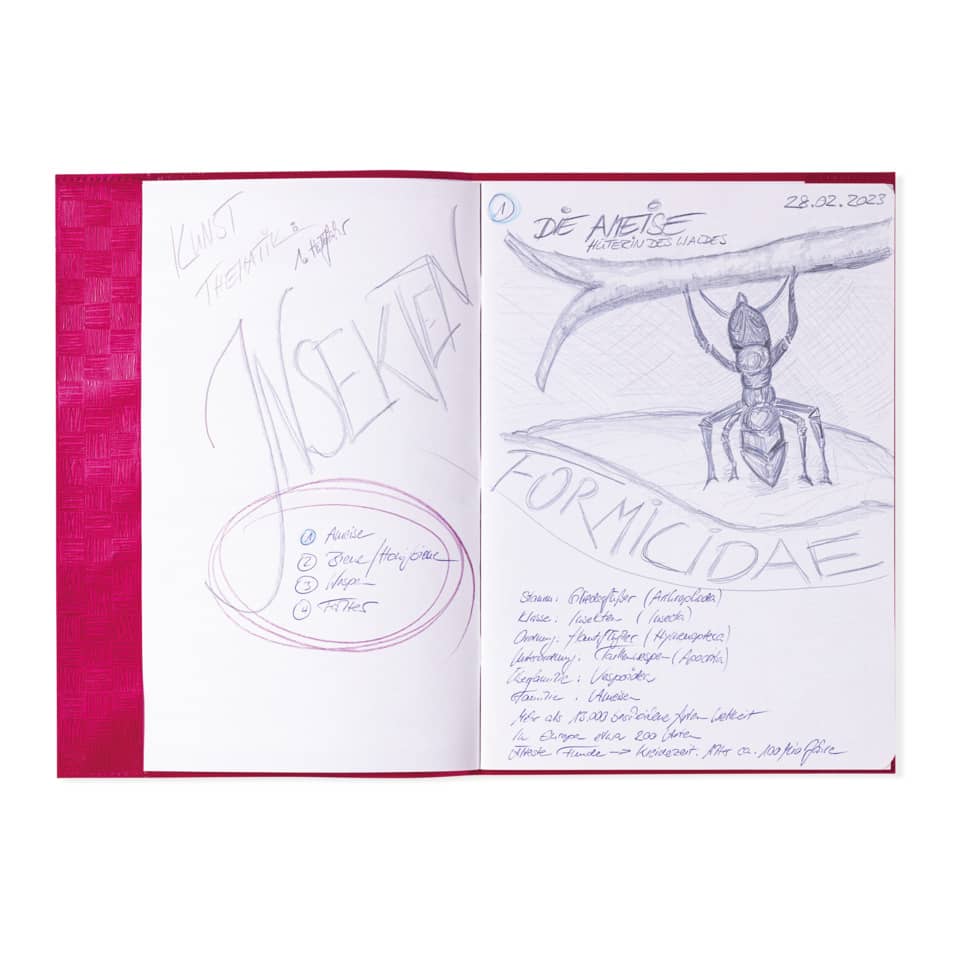 KUNST
THEMATIK:
INSEKTEN
1 Ameise
2 Biene/Honigbiene
3 Wespen
4 Falter
1
28.02.2023
DIE AMEISE
HÜTERIN DES WALDES
FORMICIDAE
Stamm: Gliederfüßer (Arthropoda)
Klasse: Insekten (Insecta)
Ordnung: Hautflügler (Hymenoptera)
Unterordnung: Taillenwespen (Apocrita)
Überfamilie: Vespoidea
Familie: Ameisen
Mehr als 13.000 beschriebene Arten weltweit
In Europa etwa 200 Arten
Älteste Funde → Kreidezeit. Alter ca. 100 Mio Jahre